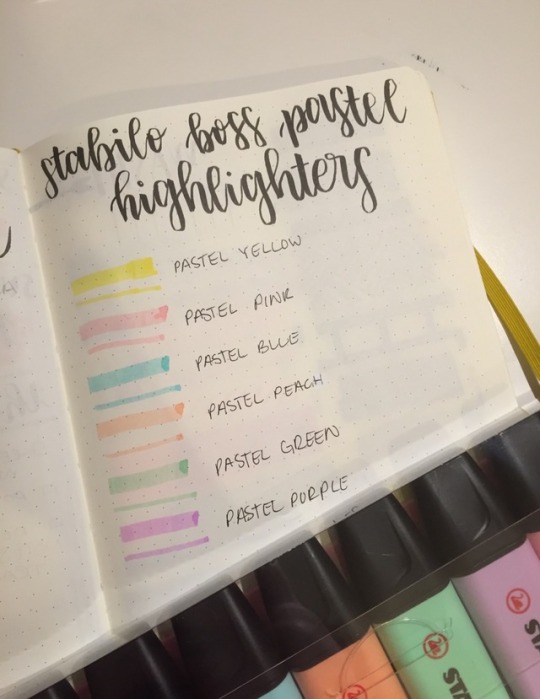 stabilo boss pastel
highlighters
PASTEL YELLOW
PASTEL PINK
PASTEL BLUE
PASTEL PEACH
PASTEL GREEN
PASTEL PURPLE